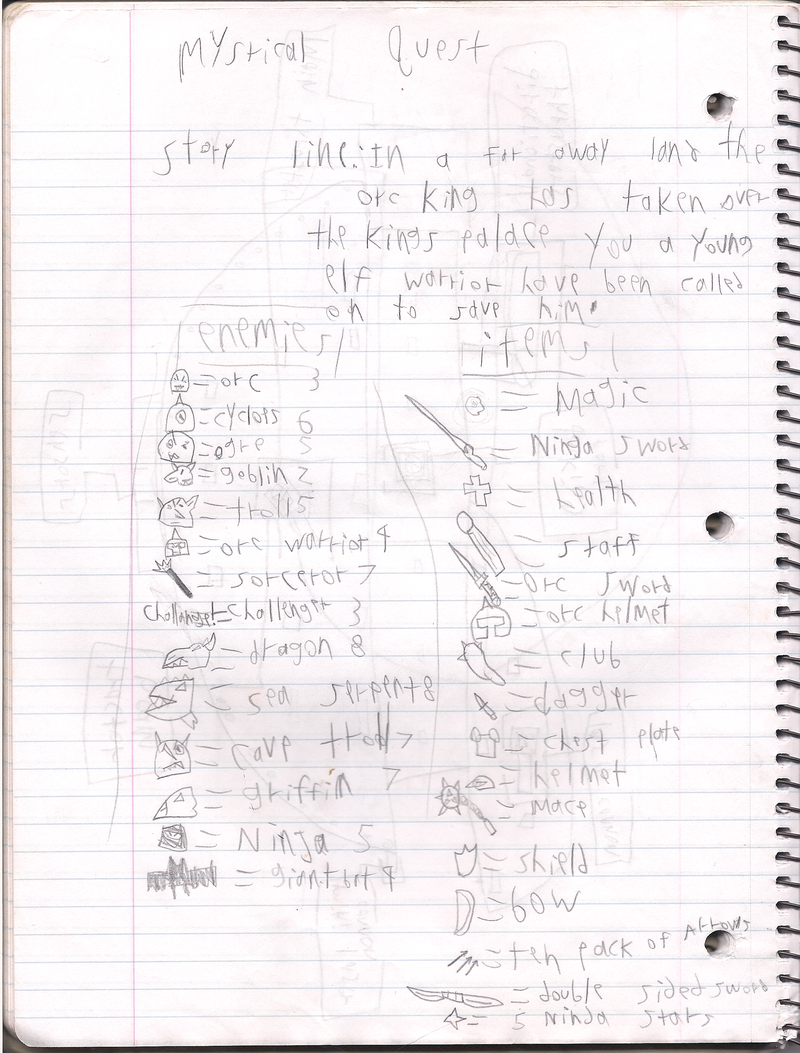 MYstical Quest
Story line: In a For away land the
orc King has taken over
the Kings palace You a Young
elf warrior have been called
on to save him.
enemies
= orc 3
= cyclops 6
= ogre 5
= goblin 2
= troll 5
= orc warrior 4
= sorceror 7
challanger = challenger 3
= dragon 8
= sea serpent 8
= cave troll 7
= griffin 7
= Ninja 5
= giant bat 4
items
= Magic
= Ninja sword
= health
= staff
= orc sword
= orc helmet
= club
= dagger
= chest plate
= helmet
= mace
= shield
= bow
= ten pack of Arrows
= double sided sword
= 5 Ninja stars